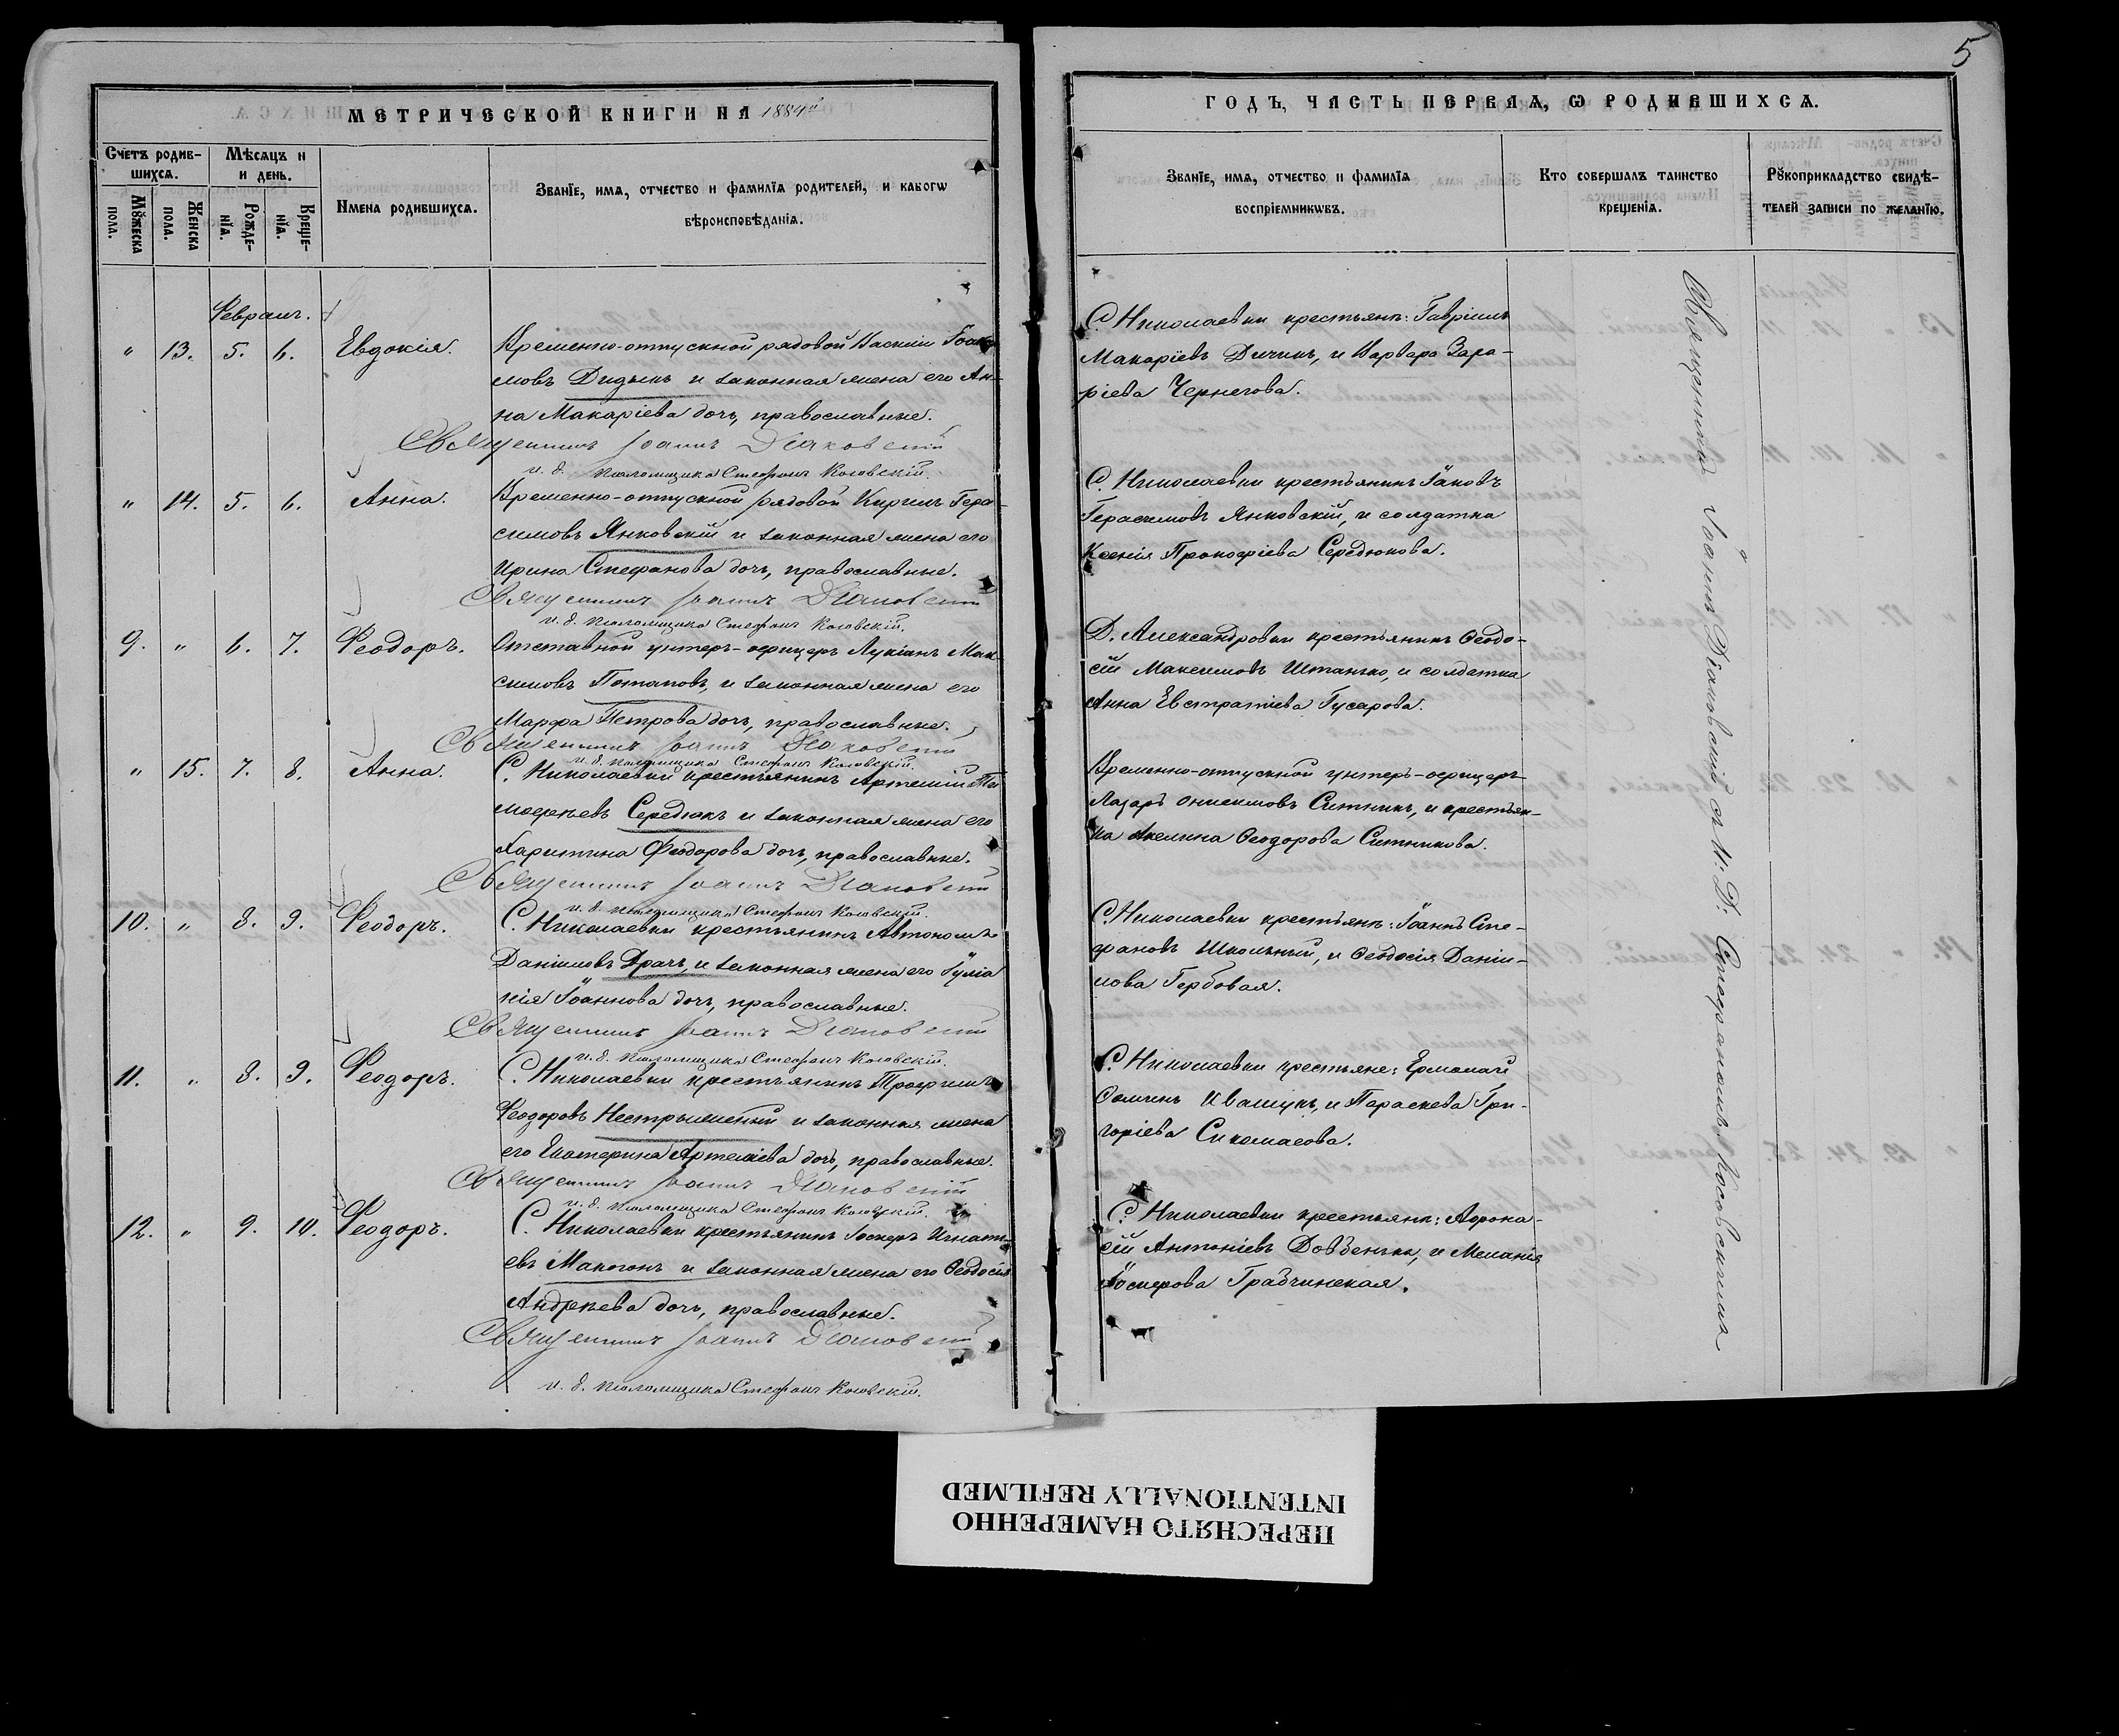 5
МЕТРИЧЕСКОЙ КНИГИ НА 1884й
Счетъ родив-
шихсѧ.
Мѣсѧцъ и
и день.
Мꙋжеска
пола.
Женска
пола.
Рожде-
нїѧ.
Креще-
нїѧ.
Имена родившихсѧ.
Званїе, имѧ, отчество и фамилїѧ родителей, и какогѡ
вѣроисповѣданїѧ.
Февраль.
" 13. 5. 6. Евдокія.
Временно-отпускной рядовой Василій
мовъ Дидыкъ и законная жена его Ан-
на Макаріева дочь, православные.
Священникъ Іоаннъ Діаковскій
и. д. псаломщика Стефанъ Косовскій.
" 14. 5. 6. Анна.
Временно-отпускной рядовой Кирилъ Гера-
симовъ Янковскій и законная жена его
Ирина Стефанова дочь, православные.
Священникъ Іоаннъ Діаковскій
и. д. псаломщика Стефанъ Косовскій.
9. " 6. 7. Ѳеодоръ.
Отставной унтеръ-офицеръ Лукіанъ Мак-
симовъ Потаповъ, и законная жена его
Марфа Петрова дочь, православные.
Священникъ Іоаннъ Діаковскій
и. д. псаломщика Стефанъ Косовскій.
" 15. 7. 8. Анна.
С. Николаевки крестьянинъ Артемій Ти-
моѳеевъ Середюкъ и законная жена его
Харитина Ѳеодорова дочь, православные.
Священникъ Іоаннъ Діаковскій
и. д. псаломщика Стефанъ Косовскій.
10. " 8. 9. Ѳеодоръ.
С. Николаевки крестьянинъ Автономъ
Даніиловъ Драчъ, и законная жена его Іуліа
нія Іоаннова дочь, православные.
Священникъ Іоаннъ Діаковскій
и. д. псаломщика Стефанъ Косовскій.
11. " 8. 9. Ѳеодоръ.
С. Николаевки крестьянинъ Трофимъ
Ѳеодоровъ и законная жена
его Екатерина Артеміева дочь, православные.
Священникъ Іоаннъ Діаковскій
и. д. псаломщика Стефанъ Косовскій.
12. " 9. 10. Ѳеодоръ.
С. Николаевки крестьянинъ Іосифъ Игнать-
евъ Макогонъ и законная жена его Ѳеодосія
Андреева дочь, православные.
Священникъ Іоаннъ Діаковскій
и. д. псаломщика Стефанъ Косовскій.
ГОДЪ, ЧАСТЬ ПЕРВАѦ, Ѡ РОДИВШИХСѦ.
Званїе, имѧ, отчество и фамилїѧ
воспрїемникѡвъ.
Кто совершалъ таинство
крещенїѧ.
Рꙋкоприкладство свидѣ-
телей записи по желанїю.
С. Николаевки крестьяне: Гавріилъ
Макаріевъ Дичикъ, и Варвара Заха-
ріева Чернегова.
С. Николаевки крестьянинъ Іаковъ
Герасимовъ Янковскій, и солдатка
Ксенія Прокофіева Середюкова.
Д. Александровки крестьянинъ Ѳеодо-
сій Максимовъ Штанько, и солдатка
Анна Евстратіева Гусарова.
Временно-отпускной унтеръ-офицеръ
Лазарь Онисимовъ Ситникъ, и крестьян-
ка Акелина Ѳеодорова Ситникова.
С. Николаевки крестьяне: Іоаннъ Сте-
фановъ Школьный, и Ѳеодосія Даніи-
лова Гербовая.
С. Николаевки крестьяне: Ермолай
Ивашукъ, и Параскева Гри-
горіева
С. Николаевки крестьяне: Афона-
сій Антоніевъ Довбенька, и Меланія
Іосифова Грабчинская.
Священникъ Іоаннъ Діаковскій съ И. Д. Стефаномъ Косовскимъ
ПЕРЕСНЯТО НАМЕРЕННО
INTENTIONALLY REFILMED